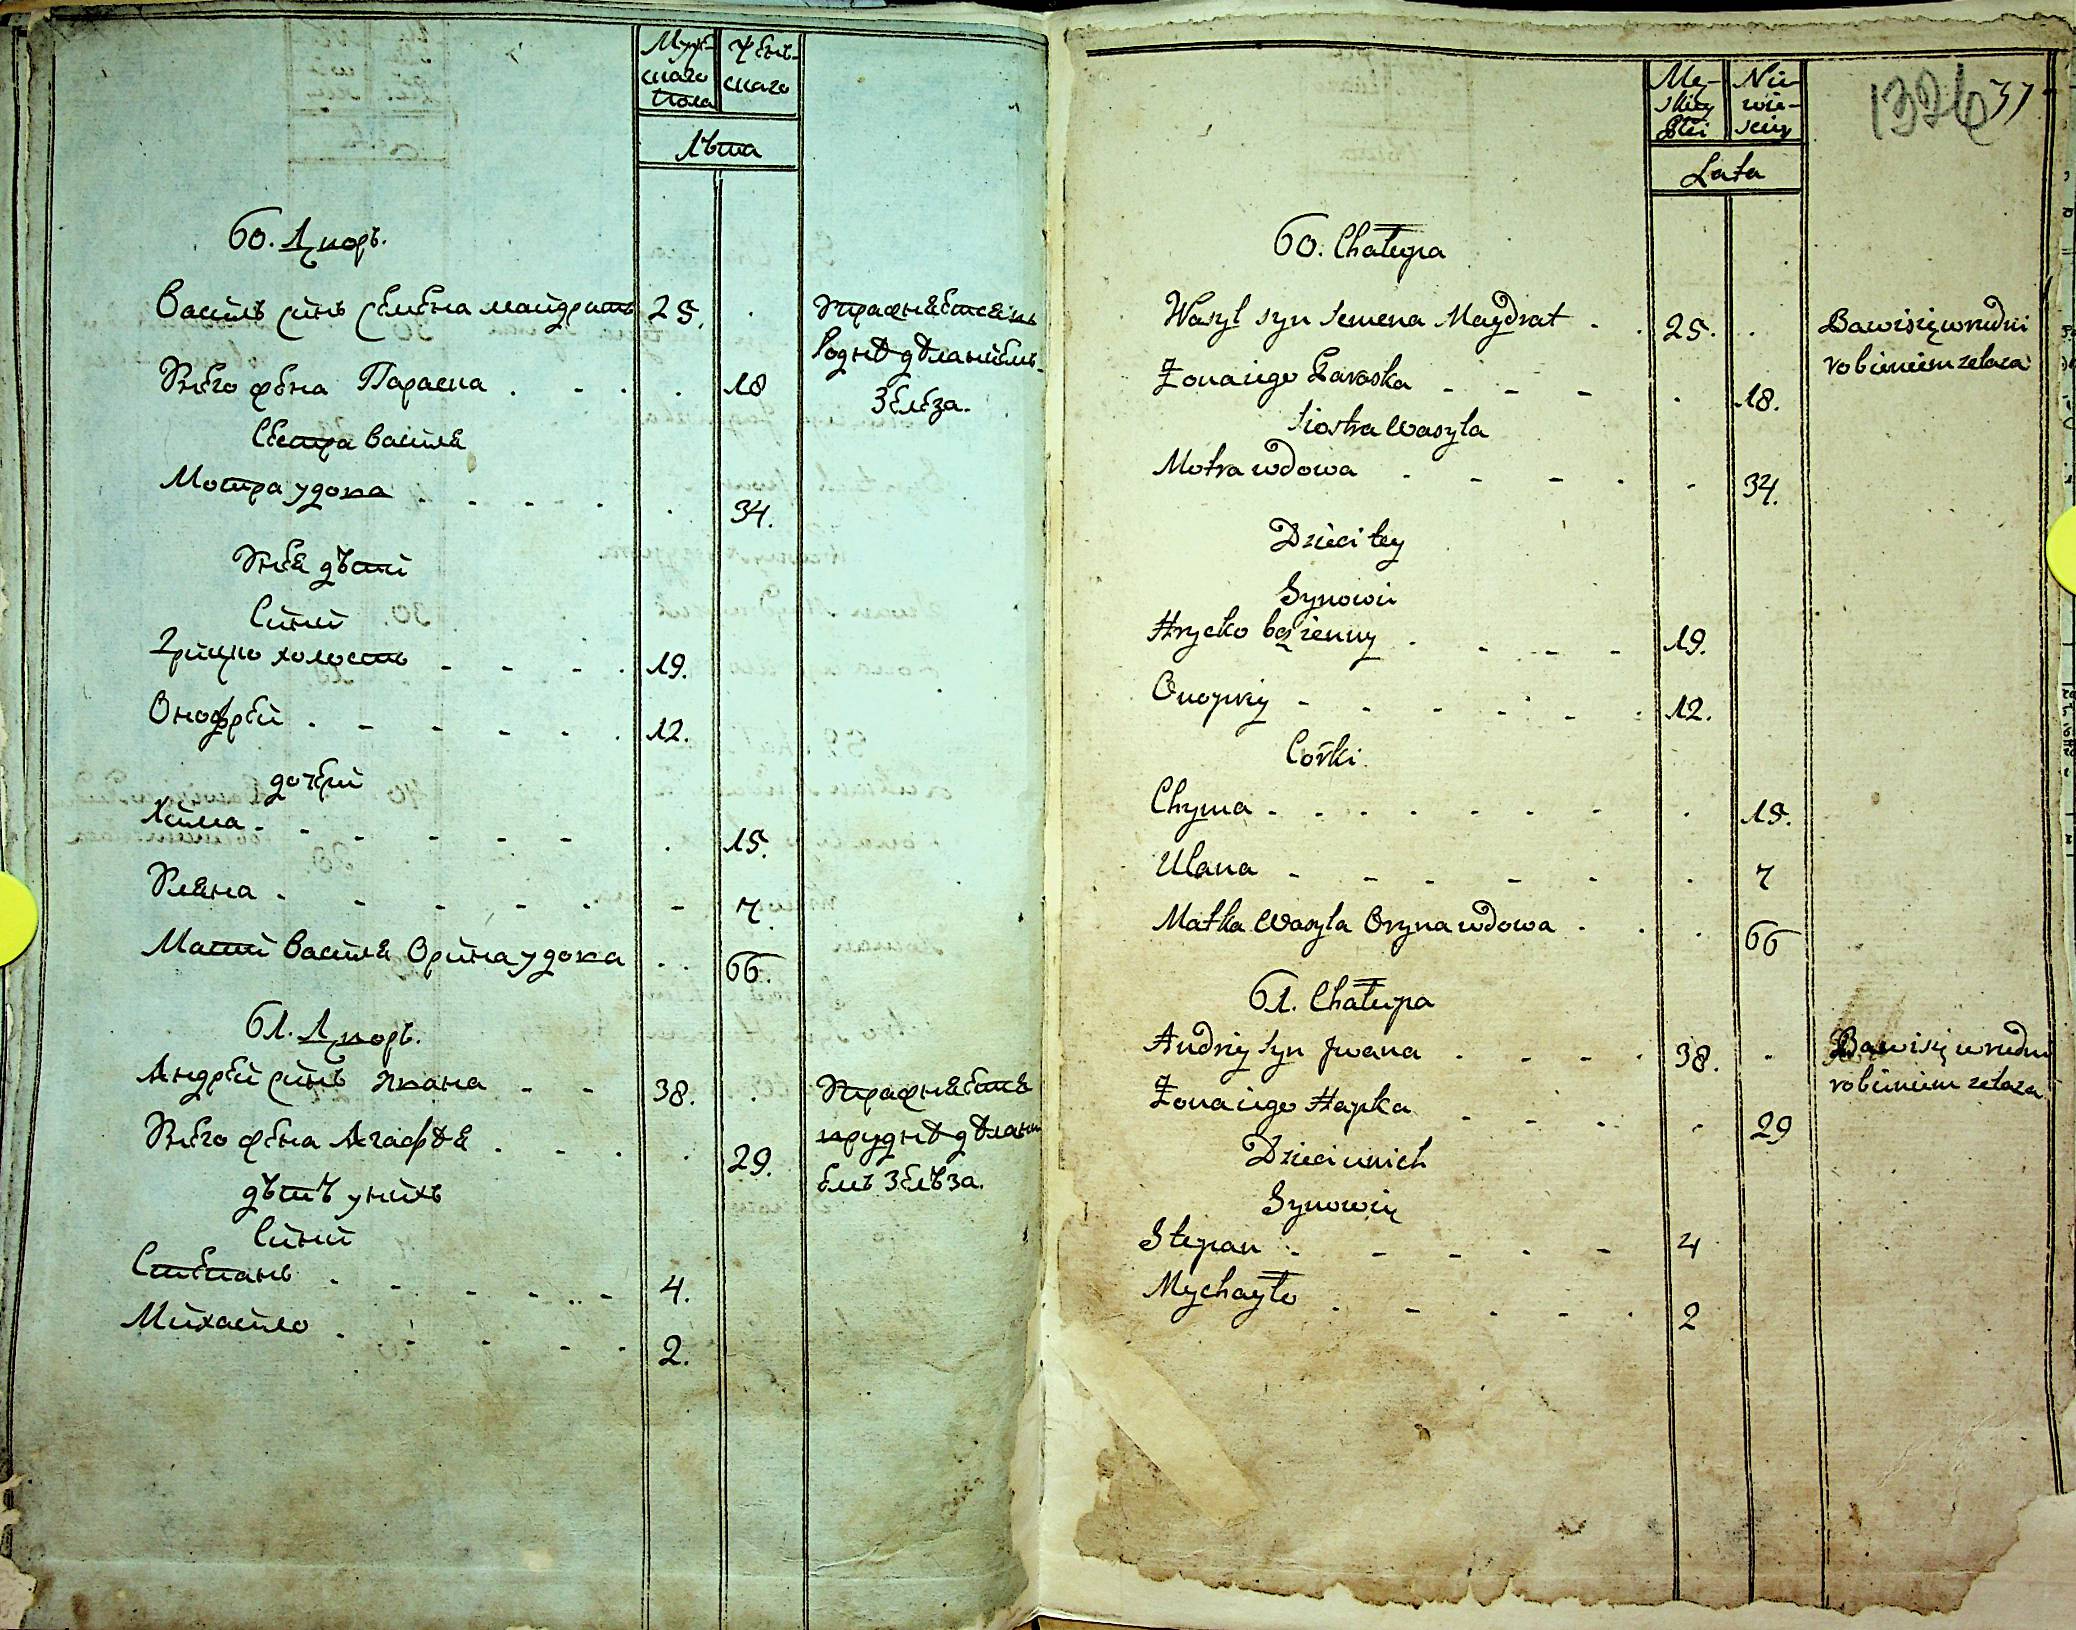 Муж-
скаго
пола
Жень-
скаго
Лѣта
60. Дворъ.
Василь синъ Семена майдратъ . 25.
Упражняется въ
родне деланием
зелеза.
Его жена Параска . . . . 18
Сестра Василя
Мотра удова . . . . . 34.
Ея дѣти
Сини
Грицко холостъ . . . . 19.
Онофрей . . . . . . 12.
дочери
Хима . . . . . . . 15.
Уляна . . . . . . 7.
Мати Василя Орина удова . . 66.
61. Дворъ.
Андрей синъ Ивана . . 38.
Упражняется
врудне делани
емъ зелѣза.
Его жена Агафия . . . . 29.
дѣтѣ у нихъ
Сини
Степанъ . . . . . . 4.
Михайло . . . . . . 2.
Mę-
skiey
płci
Nie-
wie-
sciey
Lata
1326
37
60. Chałupa
Wasyl syn Semena Maydrat . . 25. .
Bawi się w rudni
robieniem zelaza
Zona iego Paraska . . . . 18.
Siostra Wasyla
Motra wdowa . . . . . 34.
Dzieci tey
Synowie
Hrycko bezżenny . . . . 19.
Onopriy . . . . . . 12.
Corki
Chyma . . . . . . . 15.
Ulana . . . . . . 7
Matka Wasyla Oryna wdowa . . . 66
61. Chałupa
Andriy syn Jwana . . . . 38. .
Bawi się w rudni
robieniem zelaza
Zona iego Hapka . . . . 29
Dzieci u nich
Synowie
Stepan . . . . . 4
Mychayło . . . . . 2